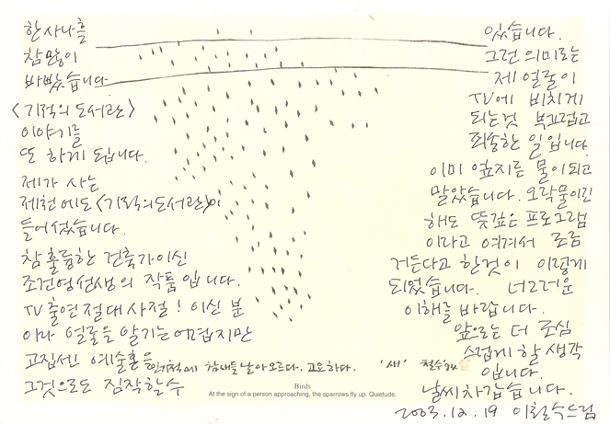 한 사나흘
참 많이
바빴습니다
<기적의 도서관>
이야기를
또 하게 됩니다.
제가 사는
제천에도 <기적의도서관>이
들어섰습니다.
참 훌륭한 건축가이신
조건영선생의 작품입니다.
TV출연 절대사절! 이신 분
이라 얼굴을 알기는 어렵지만
고집센 예술혼은
그것으로도 짐작할수
있습니다.
그런 의미로는
제 얼굴이
TV에 비치게
되는것 부끄럽고
죄송한 일입니다
이미 엎지른 물이되고
말았습니다. 오락물이긴
해도 뜻깊은 프로그램
이라고 여겨서 조금
거든다고 한것이 이렇게
되었습니다. 너그러운
이해를 바랍니다.
앞으로는 더 조심
스럽게 할 생각
입니다.
날씨 차갑습니다.
2003.12.19 이철수드림
인기척에 참새들 날아오르다. 고요하다. '새' 철수
Birds
At the sign of a person approaching, the sparrows fly up. Quietude.